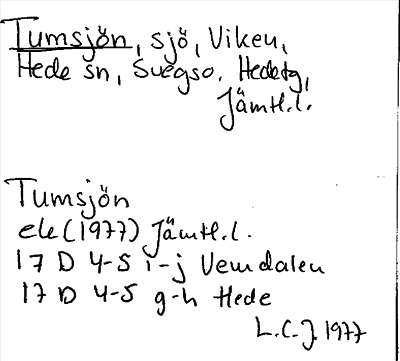 Tumsjön, sjö, Viken,
Hede sn, Svegso, Hedetg,
Jämtl.l.
Tumsjön
ek (1977) Jämtl.l.
17 D 4-5 i-j Vemdalen
17 D 4-5 g-h Hede
L.C.J. 1977